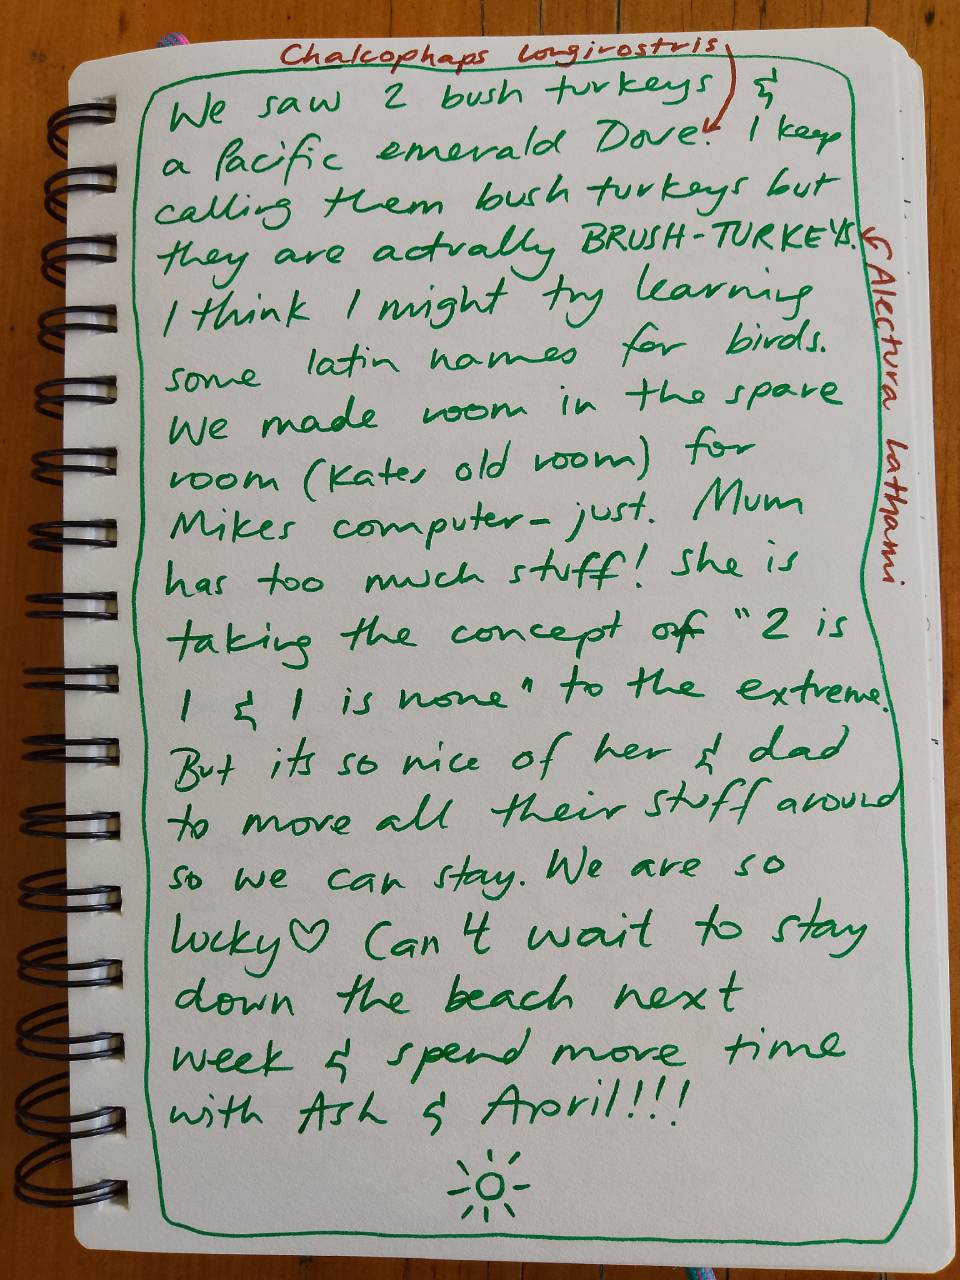 Chalcophaps longirostris
We saw 2 bush turkeys &
a Pacific emerald Dove. I keep
calling them bush turkeys but
they are actually BRUSH-TURKEYS.
Alectura lathami
I think I might try learning
some latin names for birds.
We made room in the spare
room (Kates old room) for
Mikes computer - just. Mum
has too much stuff! She is
taking the concept of "2 is
1 & 1 is none" to the extreme.
But its so nice of her & dad
to move all their stuff around
so we can stay. We are so
lucky♡ Can't wait to stay
down the beach next
week & spend more time
with Ash & April!!!